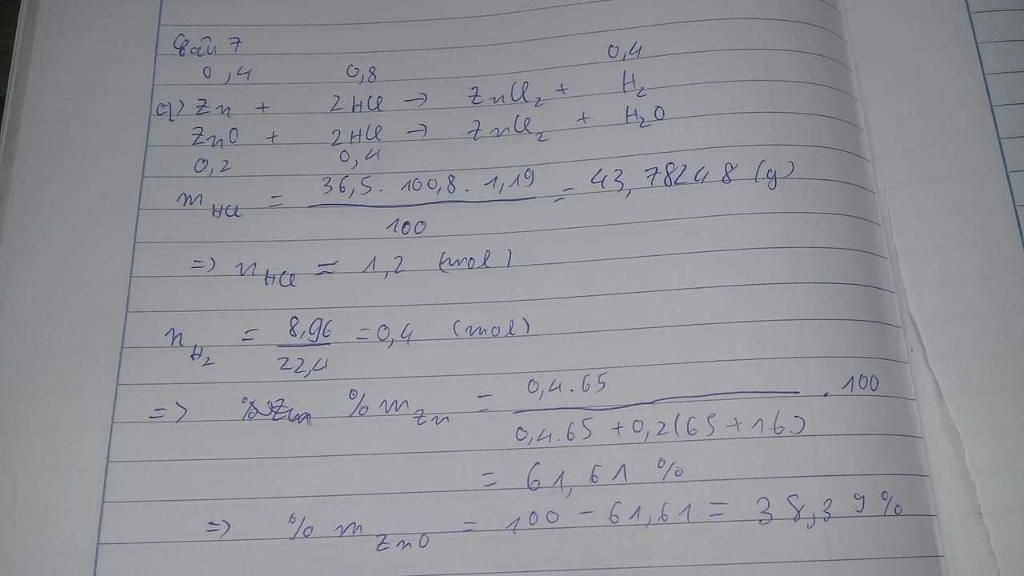 Bài 7
0,4 0,8 0,4
a) Zn + 2HCl → ZnCl₂ + H₂
ZnO + 2HCl → ZnCl₂ + H₂O
0,2 0,4
m_HCl = (36,5 . 100,8 . 1,19)/100 = 43,78248 (g)
=> n_HCl = 1,2 (mol)
n_H₂ = 8,96/22,4 = 0,4 (mol)
=> % m_Zn = (0,4.65)/(0,4.65 + 0,2(65 + 16)) . 100
= 61,61 %
=> % m_ZnO = 100 - 61,61 = 38,39 %